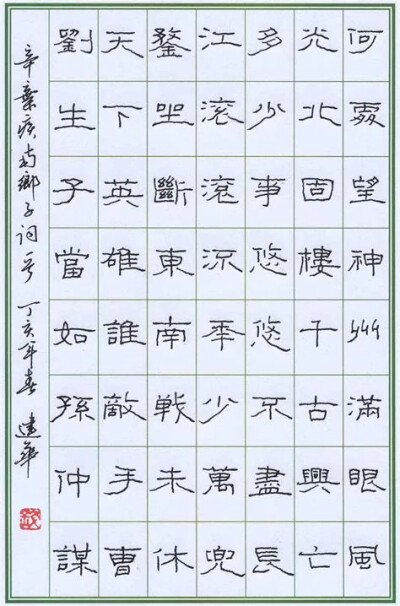 何處望神州滿眼風
光北固樓千古興亡
多少事悠悠不盡長
江滾滾流年少萬兜
鍪坐斷東南戰未休
天下英雄誰敵手曹
劉生子當如孫仲謀
辛棄疾南鄉子詞一首 丁亥年春 建華